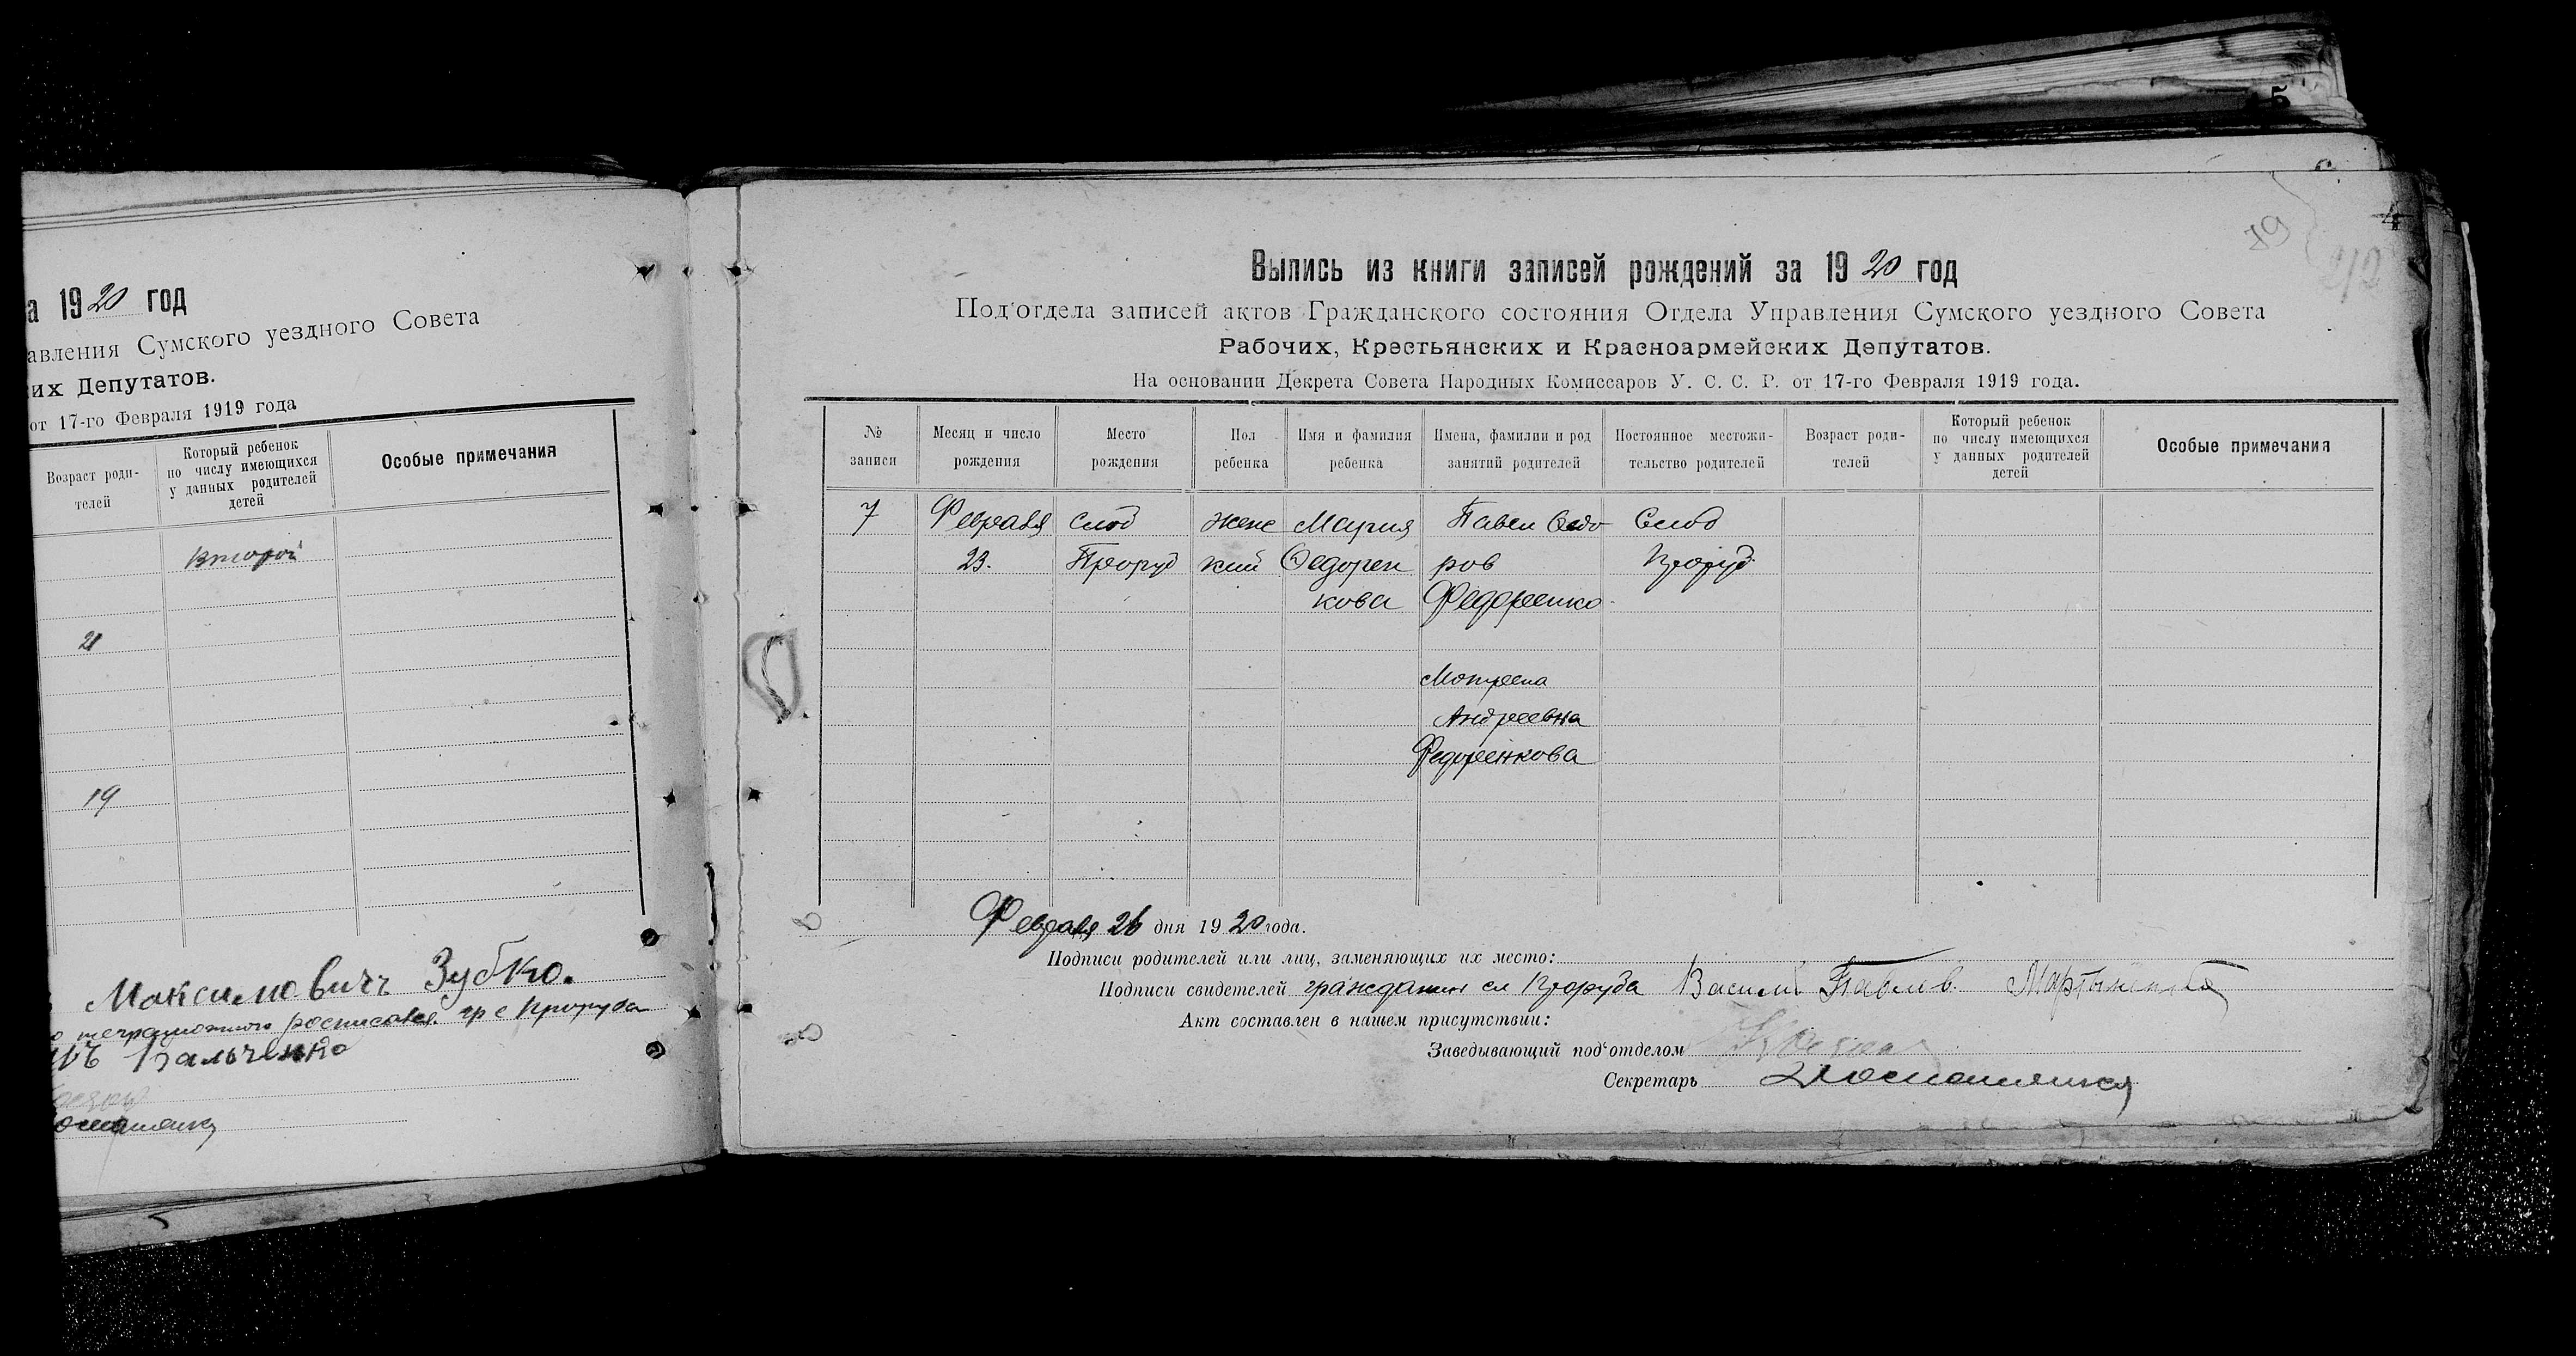 а 1920 год
авления Сумского уездного Совета
их Депутатов.
от 17-го Февраля 1919 года
Возраст роди-
телей
Который ребенок
по числу имеющихся
у данных родителей
детей
Особые примечания
второй
21
19
Максимовичъ Зубко.
росписался гр с Проруба
Вальченко
5
79
4
Выпись из книги записей рождений за 1920 год
Под'отдела записей актов Гражданского состояния Отдела Управления Сумского уездного Совета
Рабочих, Крестьянских и Красноармейских Депутатов.
На основании Декрета Совета Народных Комиссаров У. С. С. Р. от 17-го Февраля 1919 года.
№
записи
Месяц и число
рождения
Место
рождения
Пол
ребенка
Имя и фамилия
ребенка
Имена, фамилии и род
занятий родителей
Постоянное местожи-
тельство родителей
Возраст роди-
телей
Который ребенок
по числу имеющихся
у данных родителей
детей
Особые примечания
7 Февраля слоб женс Мария Павел Ѳедо Слоб
23. Проруб кий Ѳедорен ров Проруб
кова Федоренко
Мотрена
Андреевна
Федоренкова
Февраля 26 дня 1920 года.
Подписи родителей или лиц, заменяющих их место:
Подписи свидетелей гражданин сл Проруба Василий Павлов
Акт составлен в нашем присутствии:
Заведывающий под'отделом
Секретарь